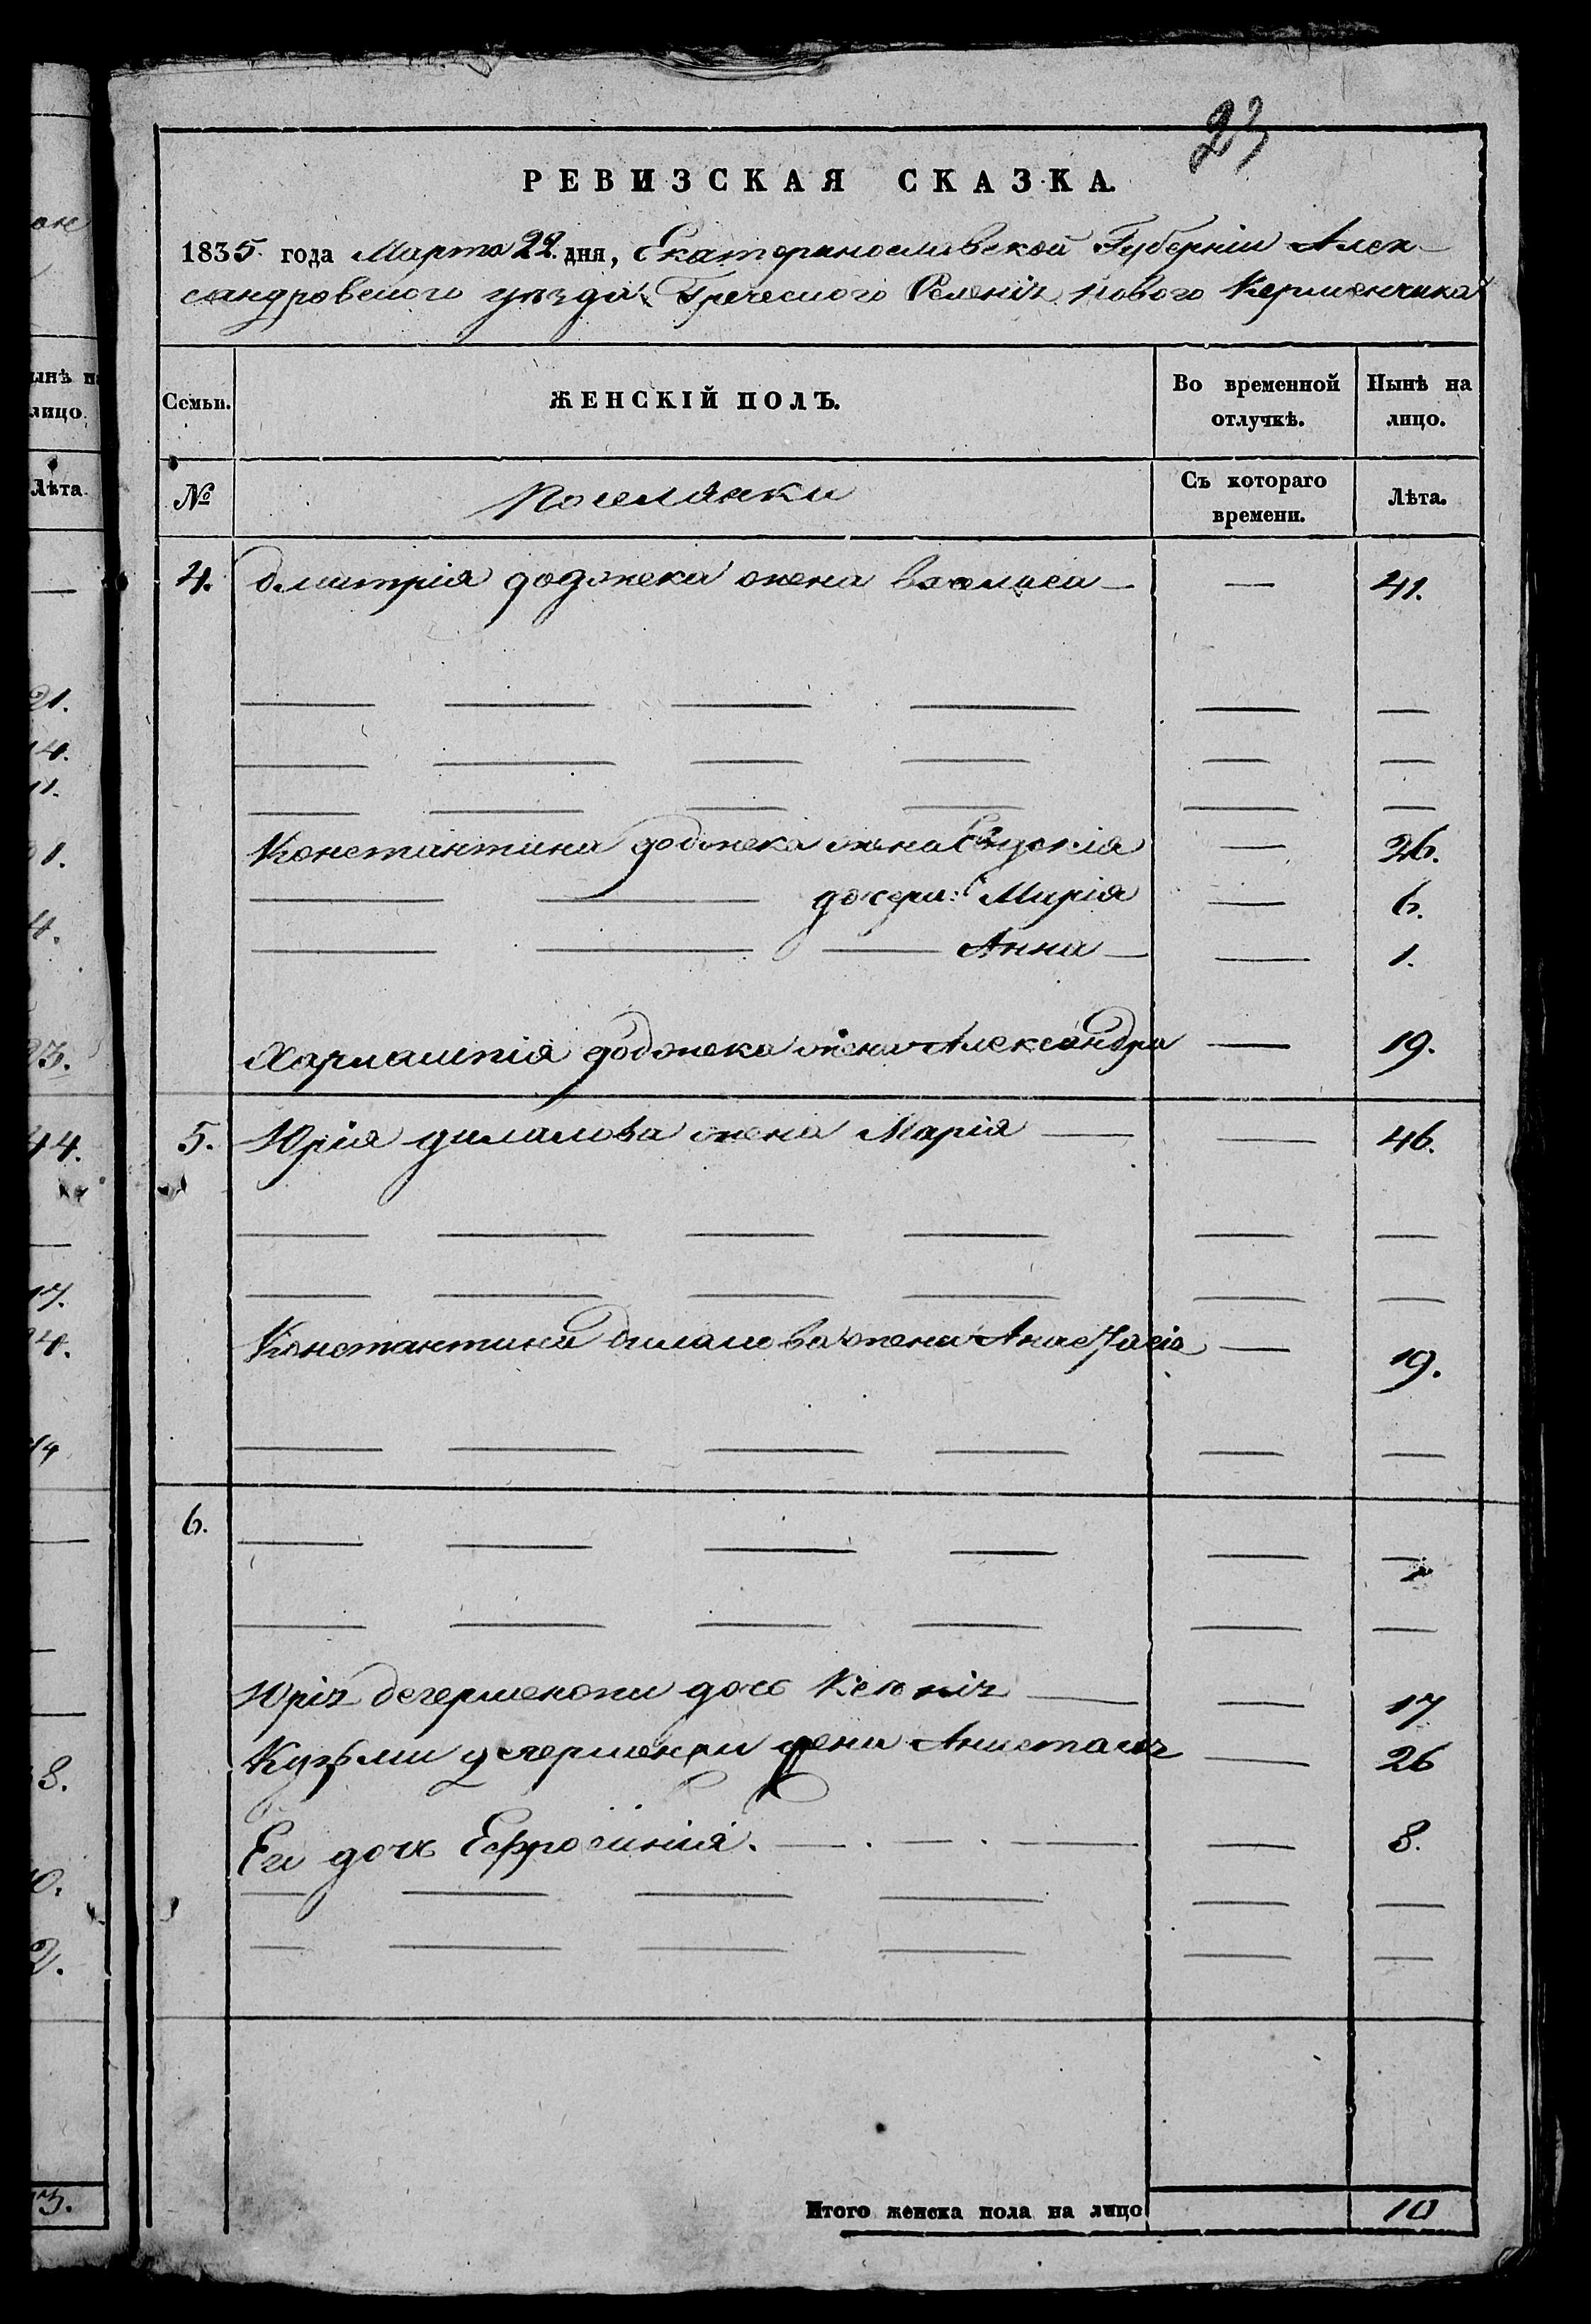 23
РЕВИЗСКАЯ СКАЗКА.
1835 года Марта 22 дня, Екатеринославской Губерніи Алек-
сандровского уѣзда Греческого Селенія Нового Керменчика
Семьи.
ЖЕНСКІЙ ПОЛЪ.
Во временной отлучкѣ.
Нынѣ на лицо.
№
Поселянки
Съ котораго времени.
Лѣта.
4. Дмитрія Доджека жена — — 41.
— — — — — —
— — — — — —
— — — — — —
Константина Доджека жена Евдокія — 26.
— — дочери: Марія — 6.
— — — Анна — — 1.
Харлампія Доджека жена Александра — 19.
5. Юрія Дилалова жена Марія — — 46.
— — — — — —
— — — — — —
Константина Дилалова жена Анастасія — 19.
— — — — — —
6. — — — — — —
— — — — — —
Юрія дочь Ксенія — — 17
Кузьмы жена Анастасія — 26
Ег дочь Ефросинія. — . — . — — 8.
— — — — — —
— — — — — —
Итого женска пола на лицо 10
ынѣ на
лицо.
Лѣта.
21.
14.
11.
1.
4.
23.
44.
17.
4.
14
8.
0.
2.
3.